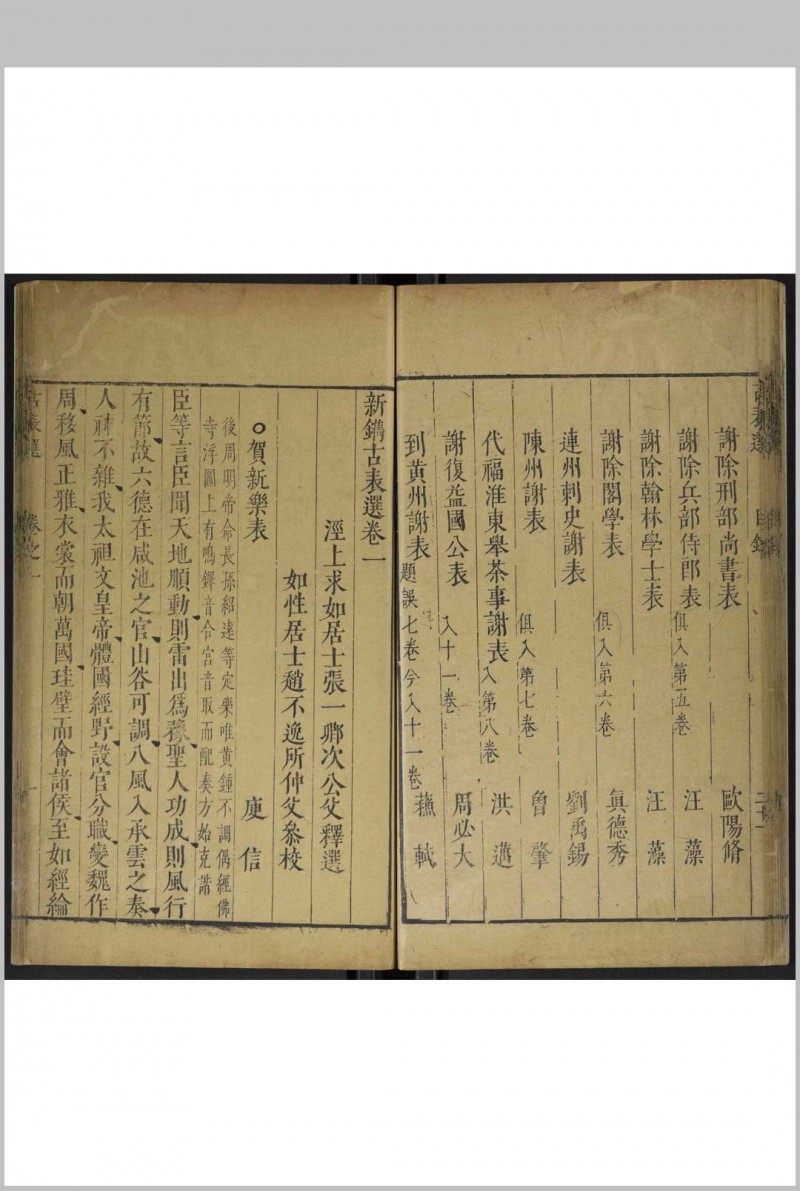 古表選 目錄 二十一
謝除刑部尚書表 歐陽脩
謝除兵部侍郎表 俱入第五卷 汪藻
謝除翰林學士表 汪藻
謝除閣學表 俱入第六卷 眞德秀
連州刺史謝表 劉禹錫
陳州謝表 俱入第七卷 曾肇
代福淮東舉茶事謝表 入第八卷 洪邁
謝復益國公表 入十一卷 周必大
到黃州謝表 題誤七卷今入十一卷 蘇軾
新鐫古表選卷一
涇上求如居士張一卿次公父釋選
如性居士趙不逸所仲父叅校
○賀新樂表 庾信
後周明帝命長孫紹遠等定樂唯黃鍾不調偶經佛
寺浮圖上有鳴鐸音合宮音取而配奏方始克諧
臣等言臣聞天地順動則雷出爲豫聖人功成則風行
有節故六德在咸池之官山谷可調八風入承雲之奏
人神不雜我太祖文皇帝體國經野設官分職變魏作
周移風正雅衣裳而朝萬國珪璧而會諸侯至如經綸
古表選 卷之一 一